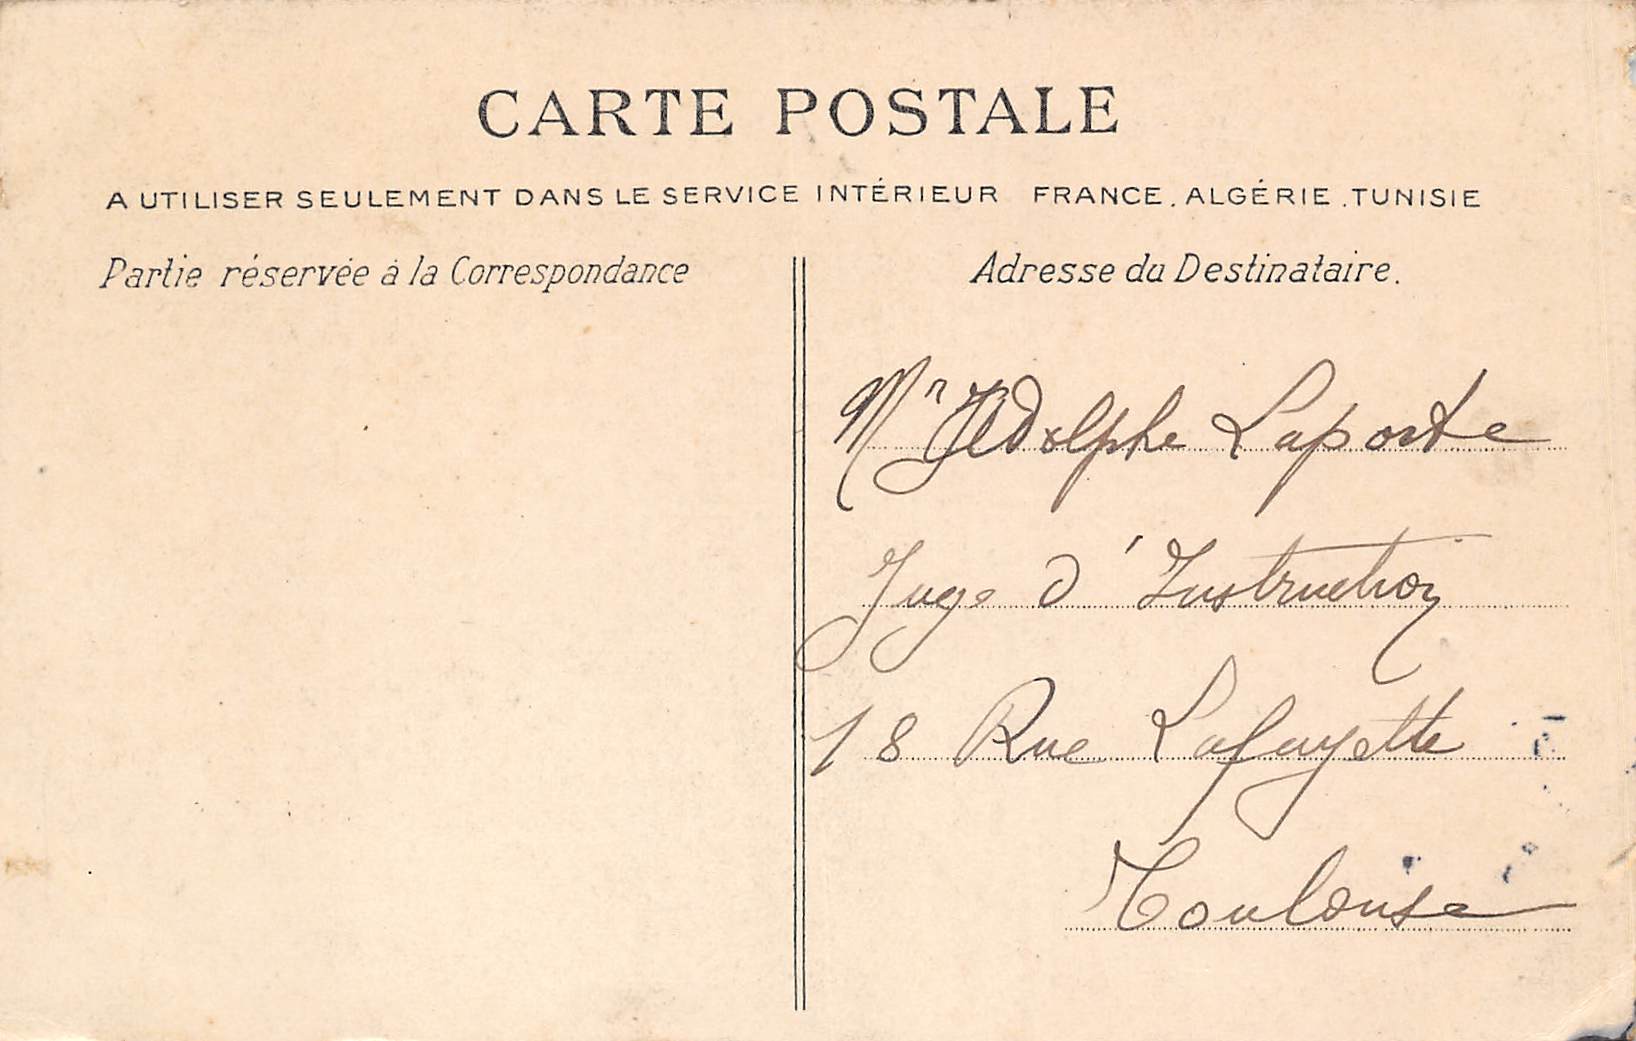 CARTE POSTALE
A UTILISER SEULEMENT DANS LE SERVICE INTÉRIEUR FRANCE. ALGÉRIE. TUNISIE
Partie réservée à la Correspondance
Adresse du Destinataire.
Mr Adolphe Laporte
Juge d'Instruction
18 Rue Lafayette
Toulouse